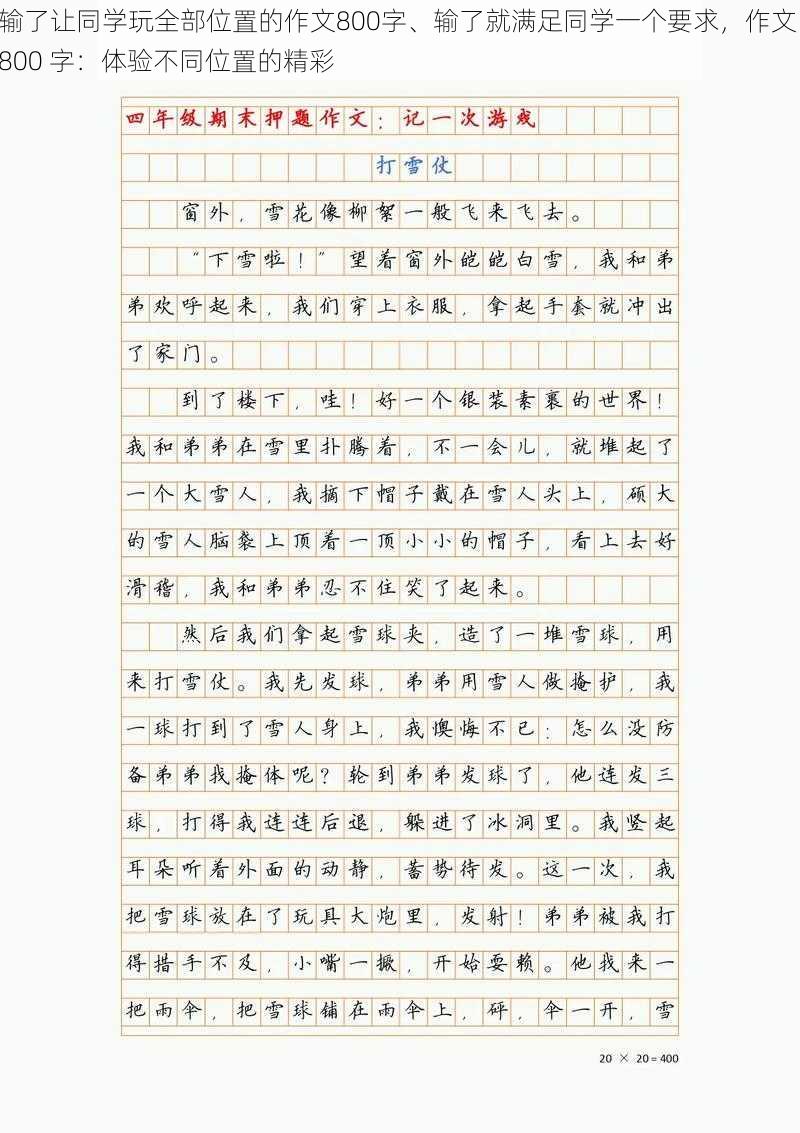 输了让同学玩全部位置的作文800字、输了就满足同学一个要求，作文
800 字：体验不同位置的精彩
四年级期末押题作文：记一次游戏
打雪仗
窗外，雪花像柳絮一般飞来飞去。
“下雪啦！”望着窗外皑皑白雪，我和弟
弟欢呼起来，我们穿上衣服，拿起手套就冲出
了家门。
到了楼下，哇！好一个银装素裹的世界！
我和弟弟在雪里扑腾着，不一会儿，就堆起了
一个大雪人，我摘下帽子戴在雪人头上，硕大
的雪人脑袋上顶着一顶小小的帽子，看上去好
滑稽，我和弟弟忍不住笑了起来。
然后我们拿起雪球夹，造了一堆雪球，用
来打雪仗。我先发球，弟弟用雪人做掩护，我
一球打到了雪人身上，我懊悔不已：怎么没防
备弟弟找掩体呢？轮到弟弟发球了，他连发三
球，打得我连连后退，躲进了冰洞里。我竖起
耳朵听着外面的动静，蓄势待发。这一次，我
把雪球放在了玩具大炮里，发射！弟弟被我打
得措手不及，小嘴一撅，开始耍赖。他找来一
把雨伞，把雪球铺在雨伞上，砰，伞一开，雪
20 × 20=400